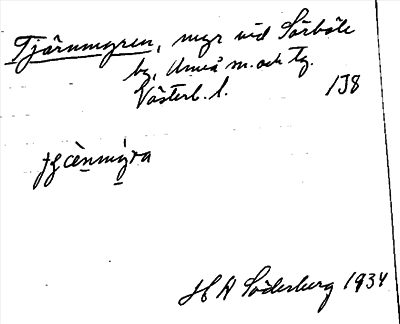 Tjärnmyren, myr vid Sörböle
by, Umeå m. och tg.
Västerb. l. 138
H A Söderberg 1934